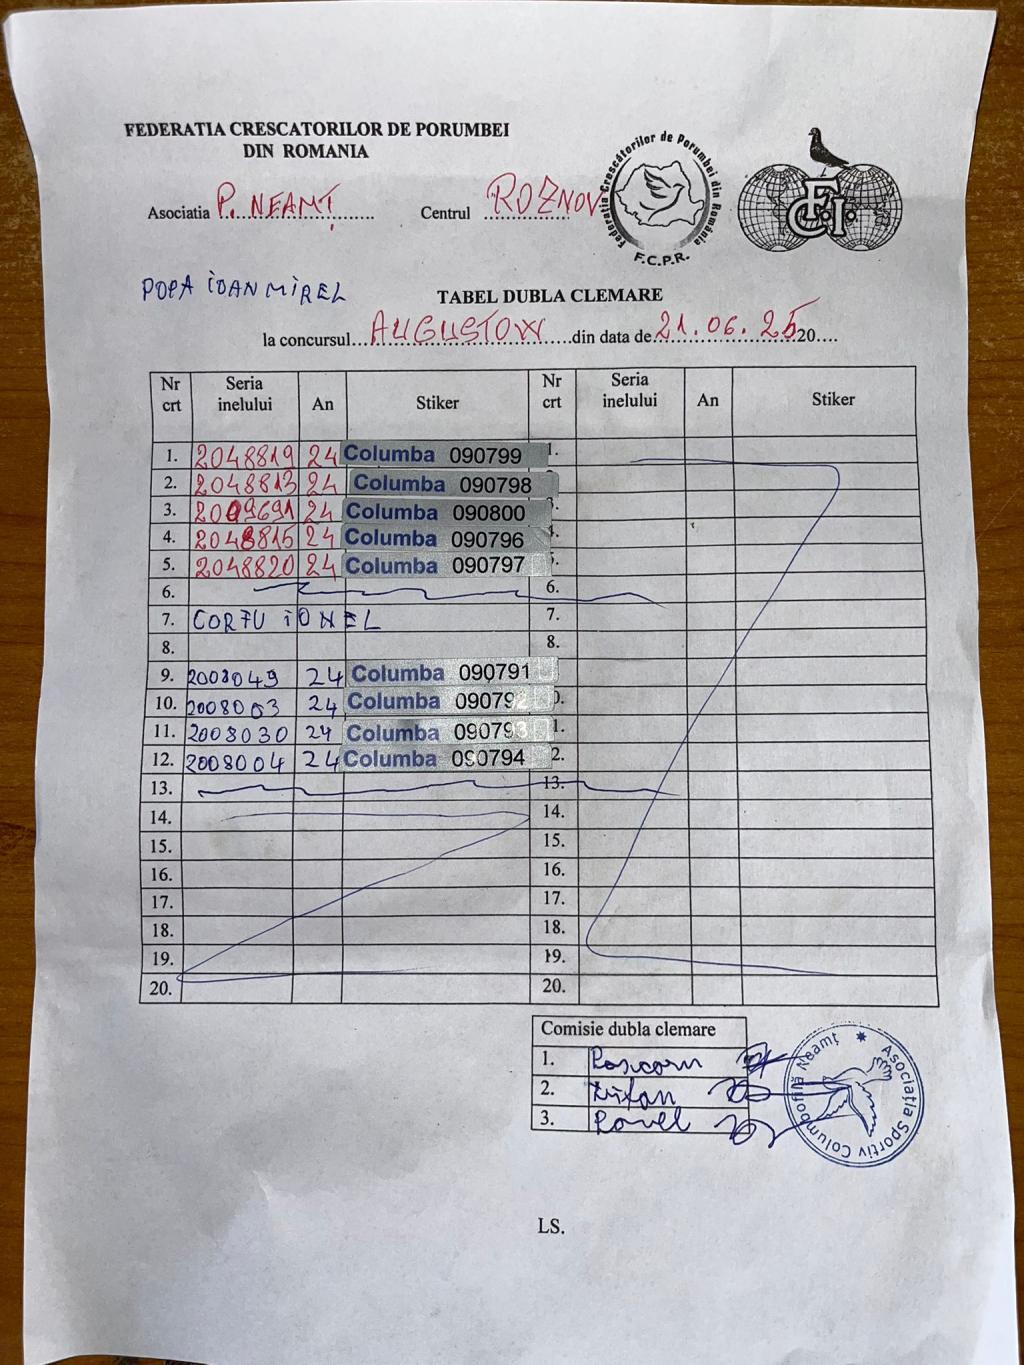 FEDERATIA CRESCATORILOR DE PORUMBEI
DIN ROMANIA
Asociatia P. NEAMȚ Centrul ROZNOV
Federatia Crescătorilor de Porumbei din România
F.C.P.R.
F.C.I.
POPA IOAN MIREL
TABEL DUBLA CLEMARE
la concursul...AUGUSTOW...din data de 21.06.25 20....
Nr crt Seria inelului An Stiker Nr crt Seria inelului An Stiker
1. 2048819 24 Columba 090799 1.
2. 2048813 24 Columba 090798
3. 2009691 24 Columba 090800 3.
4. 2048815 24 Columba 090796 4.
5. 2048820 24 Columba 090797 5.
6. 6.
7. CORFU IONEL 7.
8. 8.
9. 2008049 24 Columba 090791
10. 2008003 24 Columba 090792 0.
11. 2008030 24 Columba 090793 1.
12. 2008004 24 Columba 090794 2.
13. 13.
14. 14.
15. 15.
16. 16.
17. 17.
18. 18.
19. 19.
20. 20.
Comisie dubla clemare
1.
2.
3. Pavel
Asociația Sportiv Columbofilă Neamț
LS.